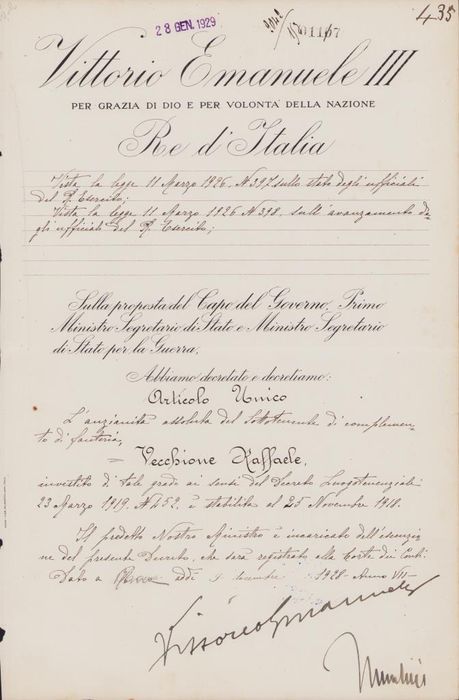 28 GEN. 1929
435
Vittorio Emanuele III
PER GRAZIA DI DIO E PER VOLONTÀ DELLA NAZIONE
Re d'Italia
Vista la legge 11 Marzo 1926, N 397 sullo stato degli ufficiali
del R. Esercito;
Vista la legge 11 Marzo 1926 N 398, sull'avanzamento de=
gli ufficiali del R. Esercito;
Sulla proposta del Capo del Governo, Primo
Ministro Segretario di Stato e Ministro Segretario
di Stato per la Guerra;
Abbiamo decretato e decretiamo:
Articolo Unico
L'anzianità assoluta del Sottotenente di complemen=
to di fanteria,
Vecchione Raffaele,
investito di tale grado ai sensi del Decreto Luogotenenziale
23 Marzo 1919, N 452, è stabilita al 25 Novembre 1918.
Il predetto Nostro Ministro è incaricato dell'esecuzio=
ne del presente Decreto, che sarà registrato alla Corte dei Conti.
Dato a Roma addì 9 dicembre 1928 - Anno VII -
Vittorio Emanuele
Mussolini